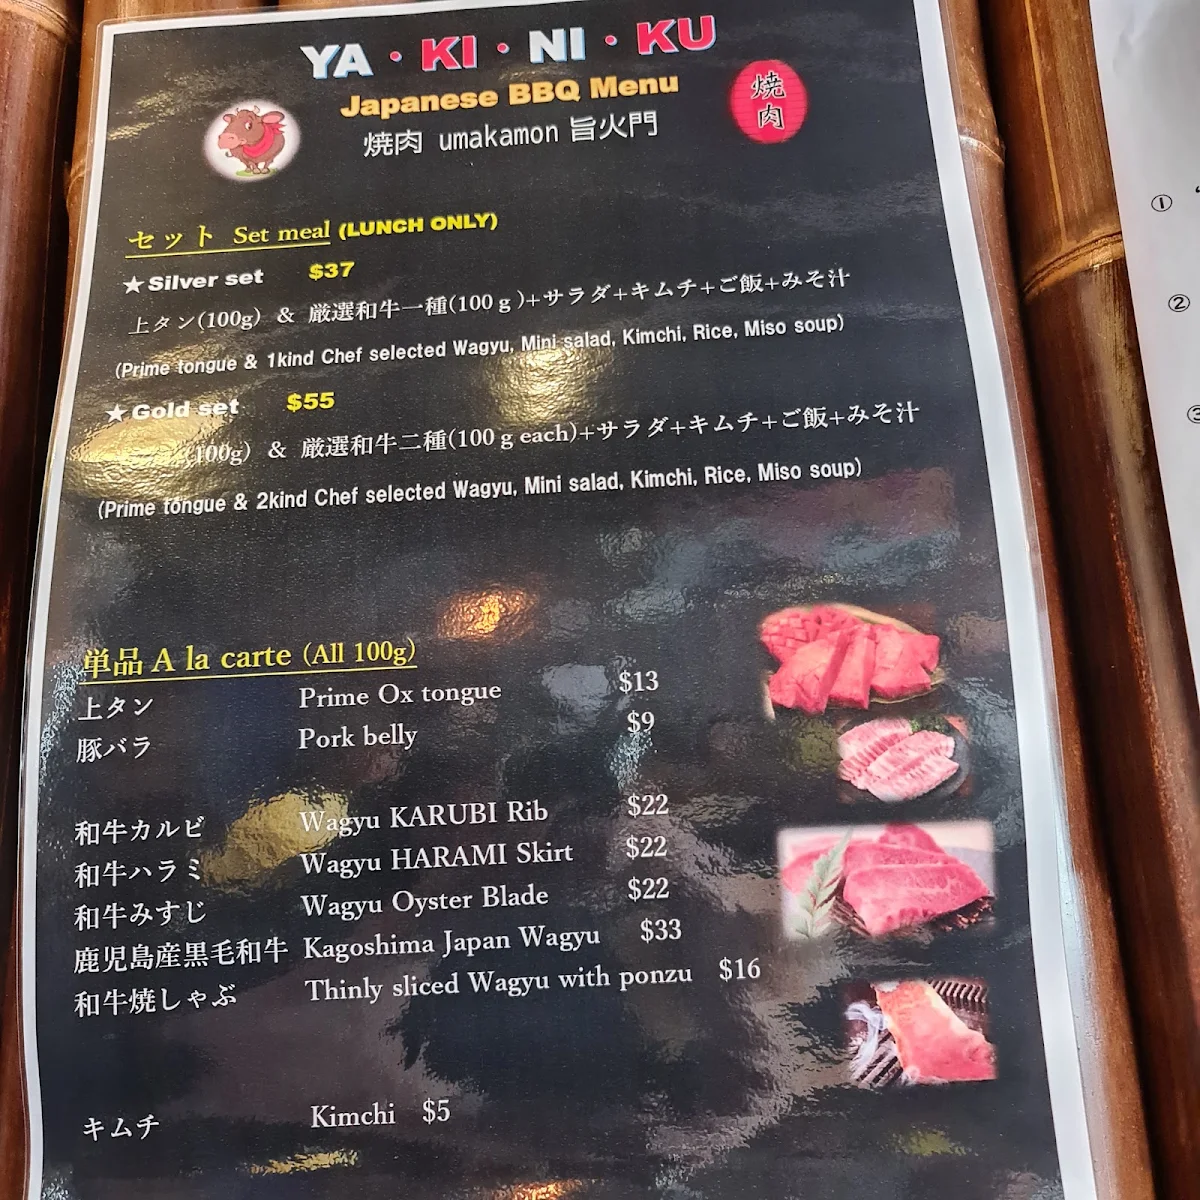 YA・KI・NI・KU
Japanese BBQ Menu
焼肉
焼肉 umakamon 旨火門
セット Set meal (LUNCH ONLY)
★Silver set $37
上タン(100g) & 厳選和牛一種(100ｇ)+サラダ+キムチ+ご飯+みそ汁
(Prime tongue & 1kind Chef selected Wagyu, Mini salad, Kimchi, Rice, Miso soup)
★Gold set $55
(100g) & 厳選和牛二種(100ｇeach)+サラダ+キムチ+ご飯+みそ汁
(Prime tongue & 2kind Chef selected Wagyu, Mini salad, Kimchi, Rice, Miso soup)
単品 A la carte (All 100g)
上タン Prime Ox tongue $13
豚バラ Pork belly $9
和牛カルビ Wagyu KARUBI Rib $22
和牛ハラミ Wagyu HARAMI Skirt $22
和牛みすじ Wagyu Oyster Blade $22
鹿児島産黒毛和牛 Kagoshima Japan Wagyu $33
和牛焼しゃぶ Thinly sliced Wagyu with ponzu $16
キムチ Kimchi $5
①
②
③